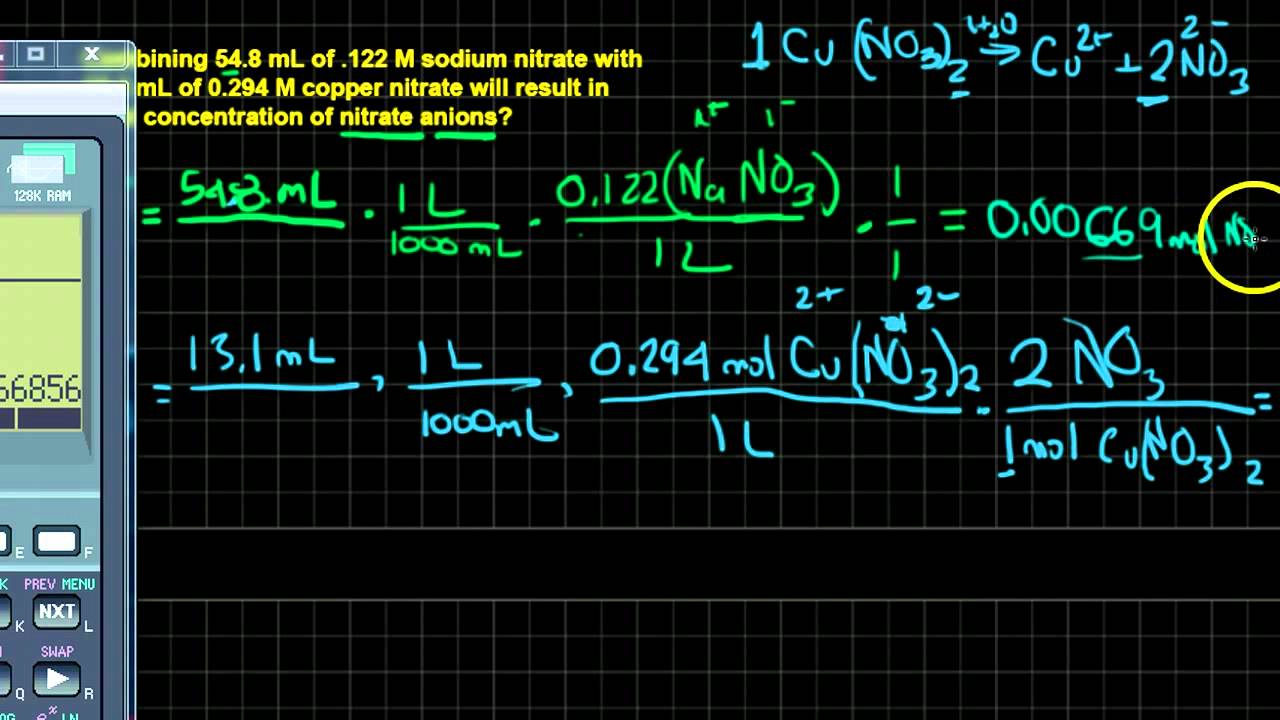 bining 54.8 mL of .122 M sodium nitrate with
mL of 0.294 M copper nitrate will result in
concentration of nitrate anions?
1 Cu (NO3)2 H2O → Cu2+ + 2NO3 2-
1+ 1-
= 54.8 mL · 1 L · 0.122 (Na NO3) · 1 = 0.00669 mol
1000 mL 1 L 1
2+ 2-
= 13.1 mL , 1 L , 0.294 mol Cu(NO3)2 · 2 NO3 =
1000 mL 1 L 1 mol Cu(NO3)2
128K RAM
66856
E F
PREV MENU
K NXT L
SWAP
Q R
LN